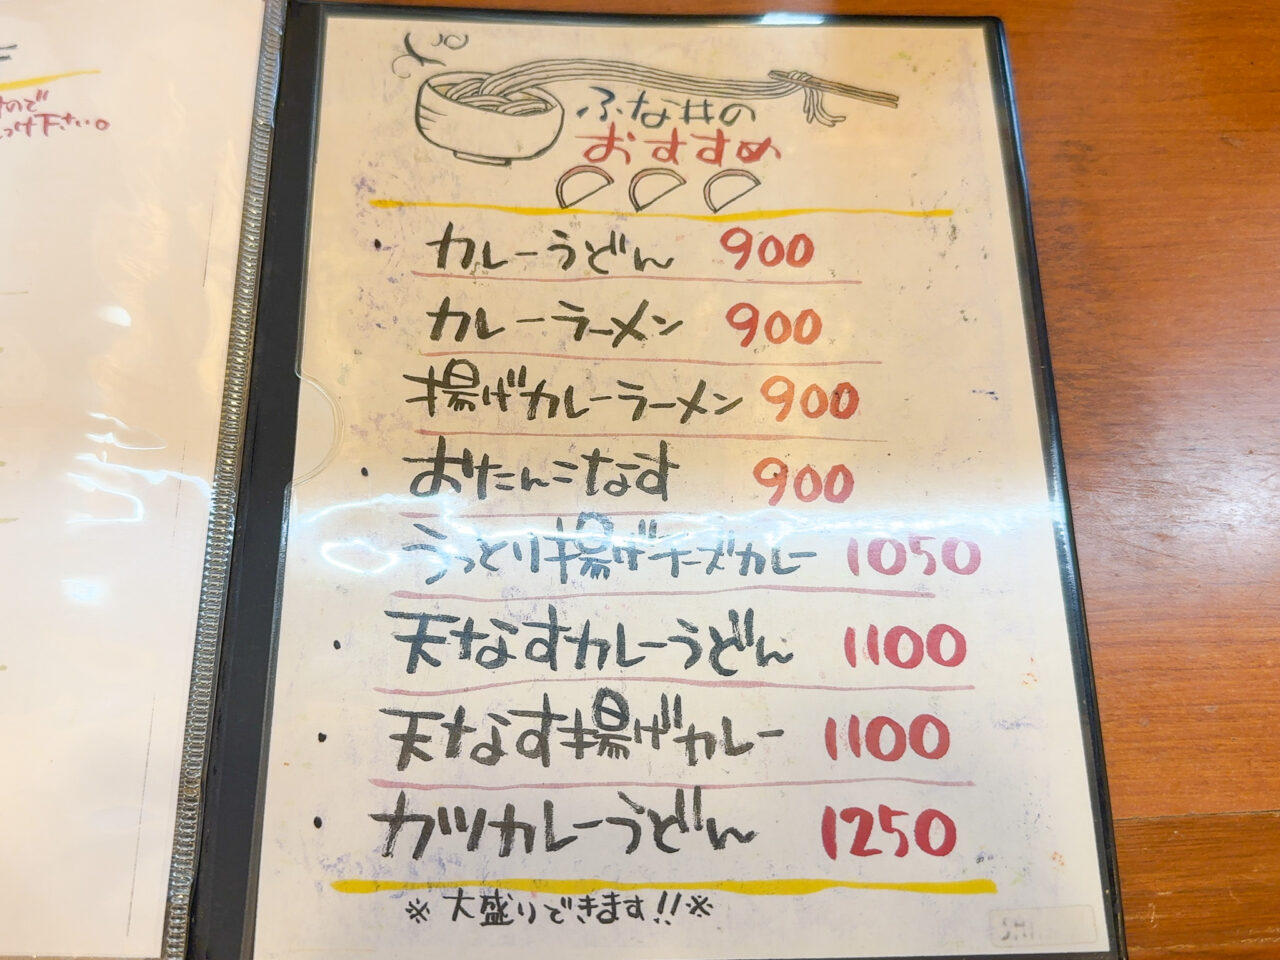 ので
つけ下さい。
ふな井の
おすすめ
・カレーうどん 900
カレーラーメン 900
揚げカレーラーメン 900
・おたんこなす 900
うっとり揚げチーズカレー 1050
・天なすカレーうどん 1100
・天なす揚げカレー 1100
・カツカレーうどん 1250
※大盛りできます!!※